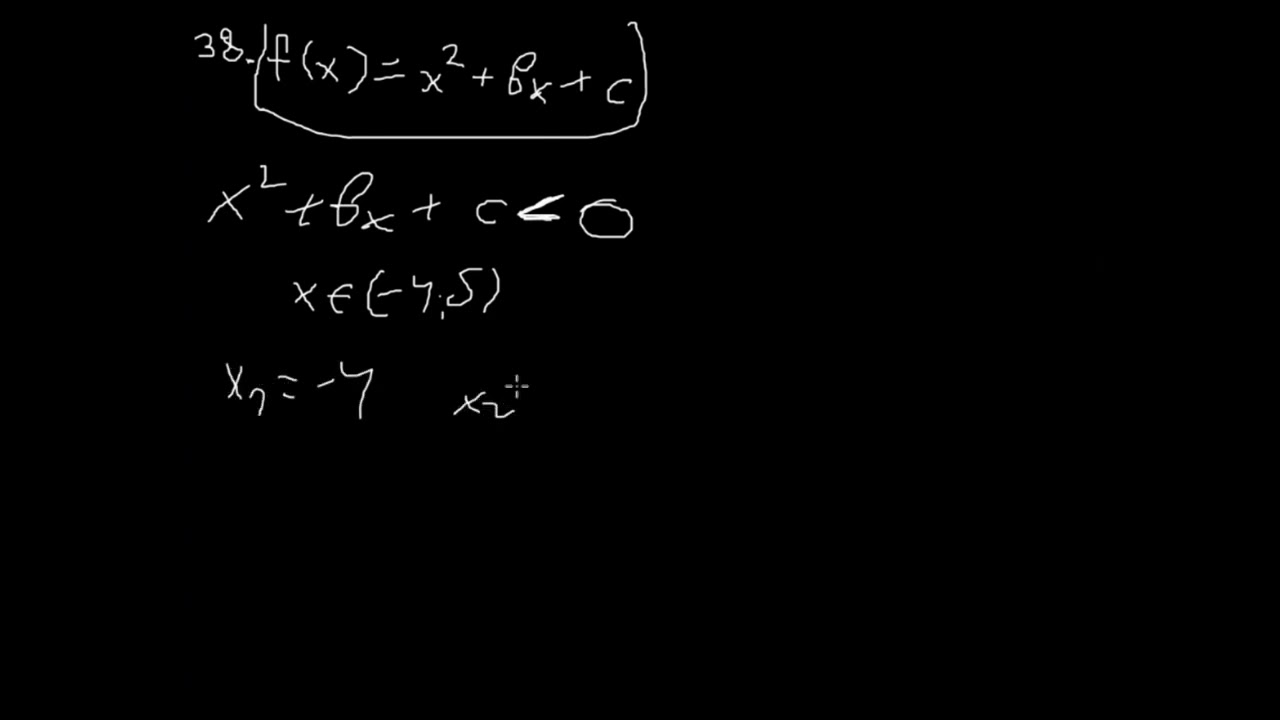 38. f(x) = x² + bx + c
x² + bx + c < 0
x ∈ (-4; 5)
x₁ = -4 x₂